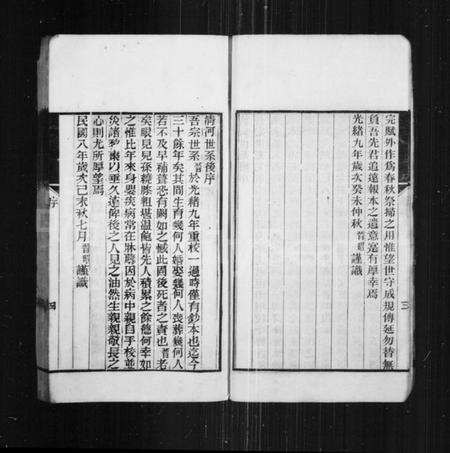 完賦外作爲春秋祭掃之用惟望世守成規傳延勿替無
負吾先君追遠報本之遺意寔有厚幸焉
光緒九年歲次癸未仲秋 晉昭 謹識
三
清河世系後序
吾宗世系 晉昭 於光緒九年重校一過時僅有鈔本也迄今
三十餘年矣其間生育幾何人婚娶幾何人喪葬幾何人
若不及早補葺恐有闕如之憾此固後死者之責也 晉昭 老
矣眼見兒孫繞膝粗堪溫飽皆先人積累之餘德何幸如
之惟比年來身嬰疾病常在牀蓐因於病中親自手校並
災諸梨棗以垂久遠俾後之人見之油然生親親敬長之
心則尤所厚望焉
民國八年歲次己未秋七月 晉昭 謹識
序
四